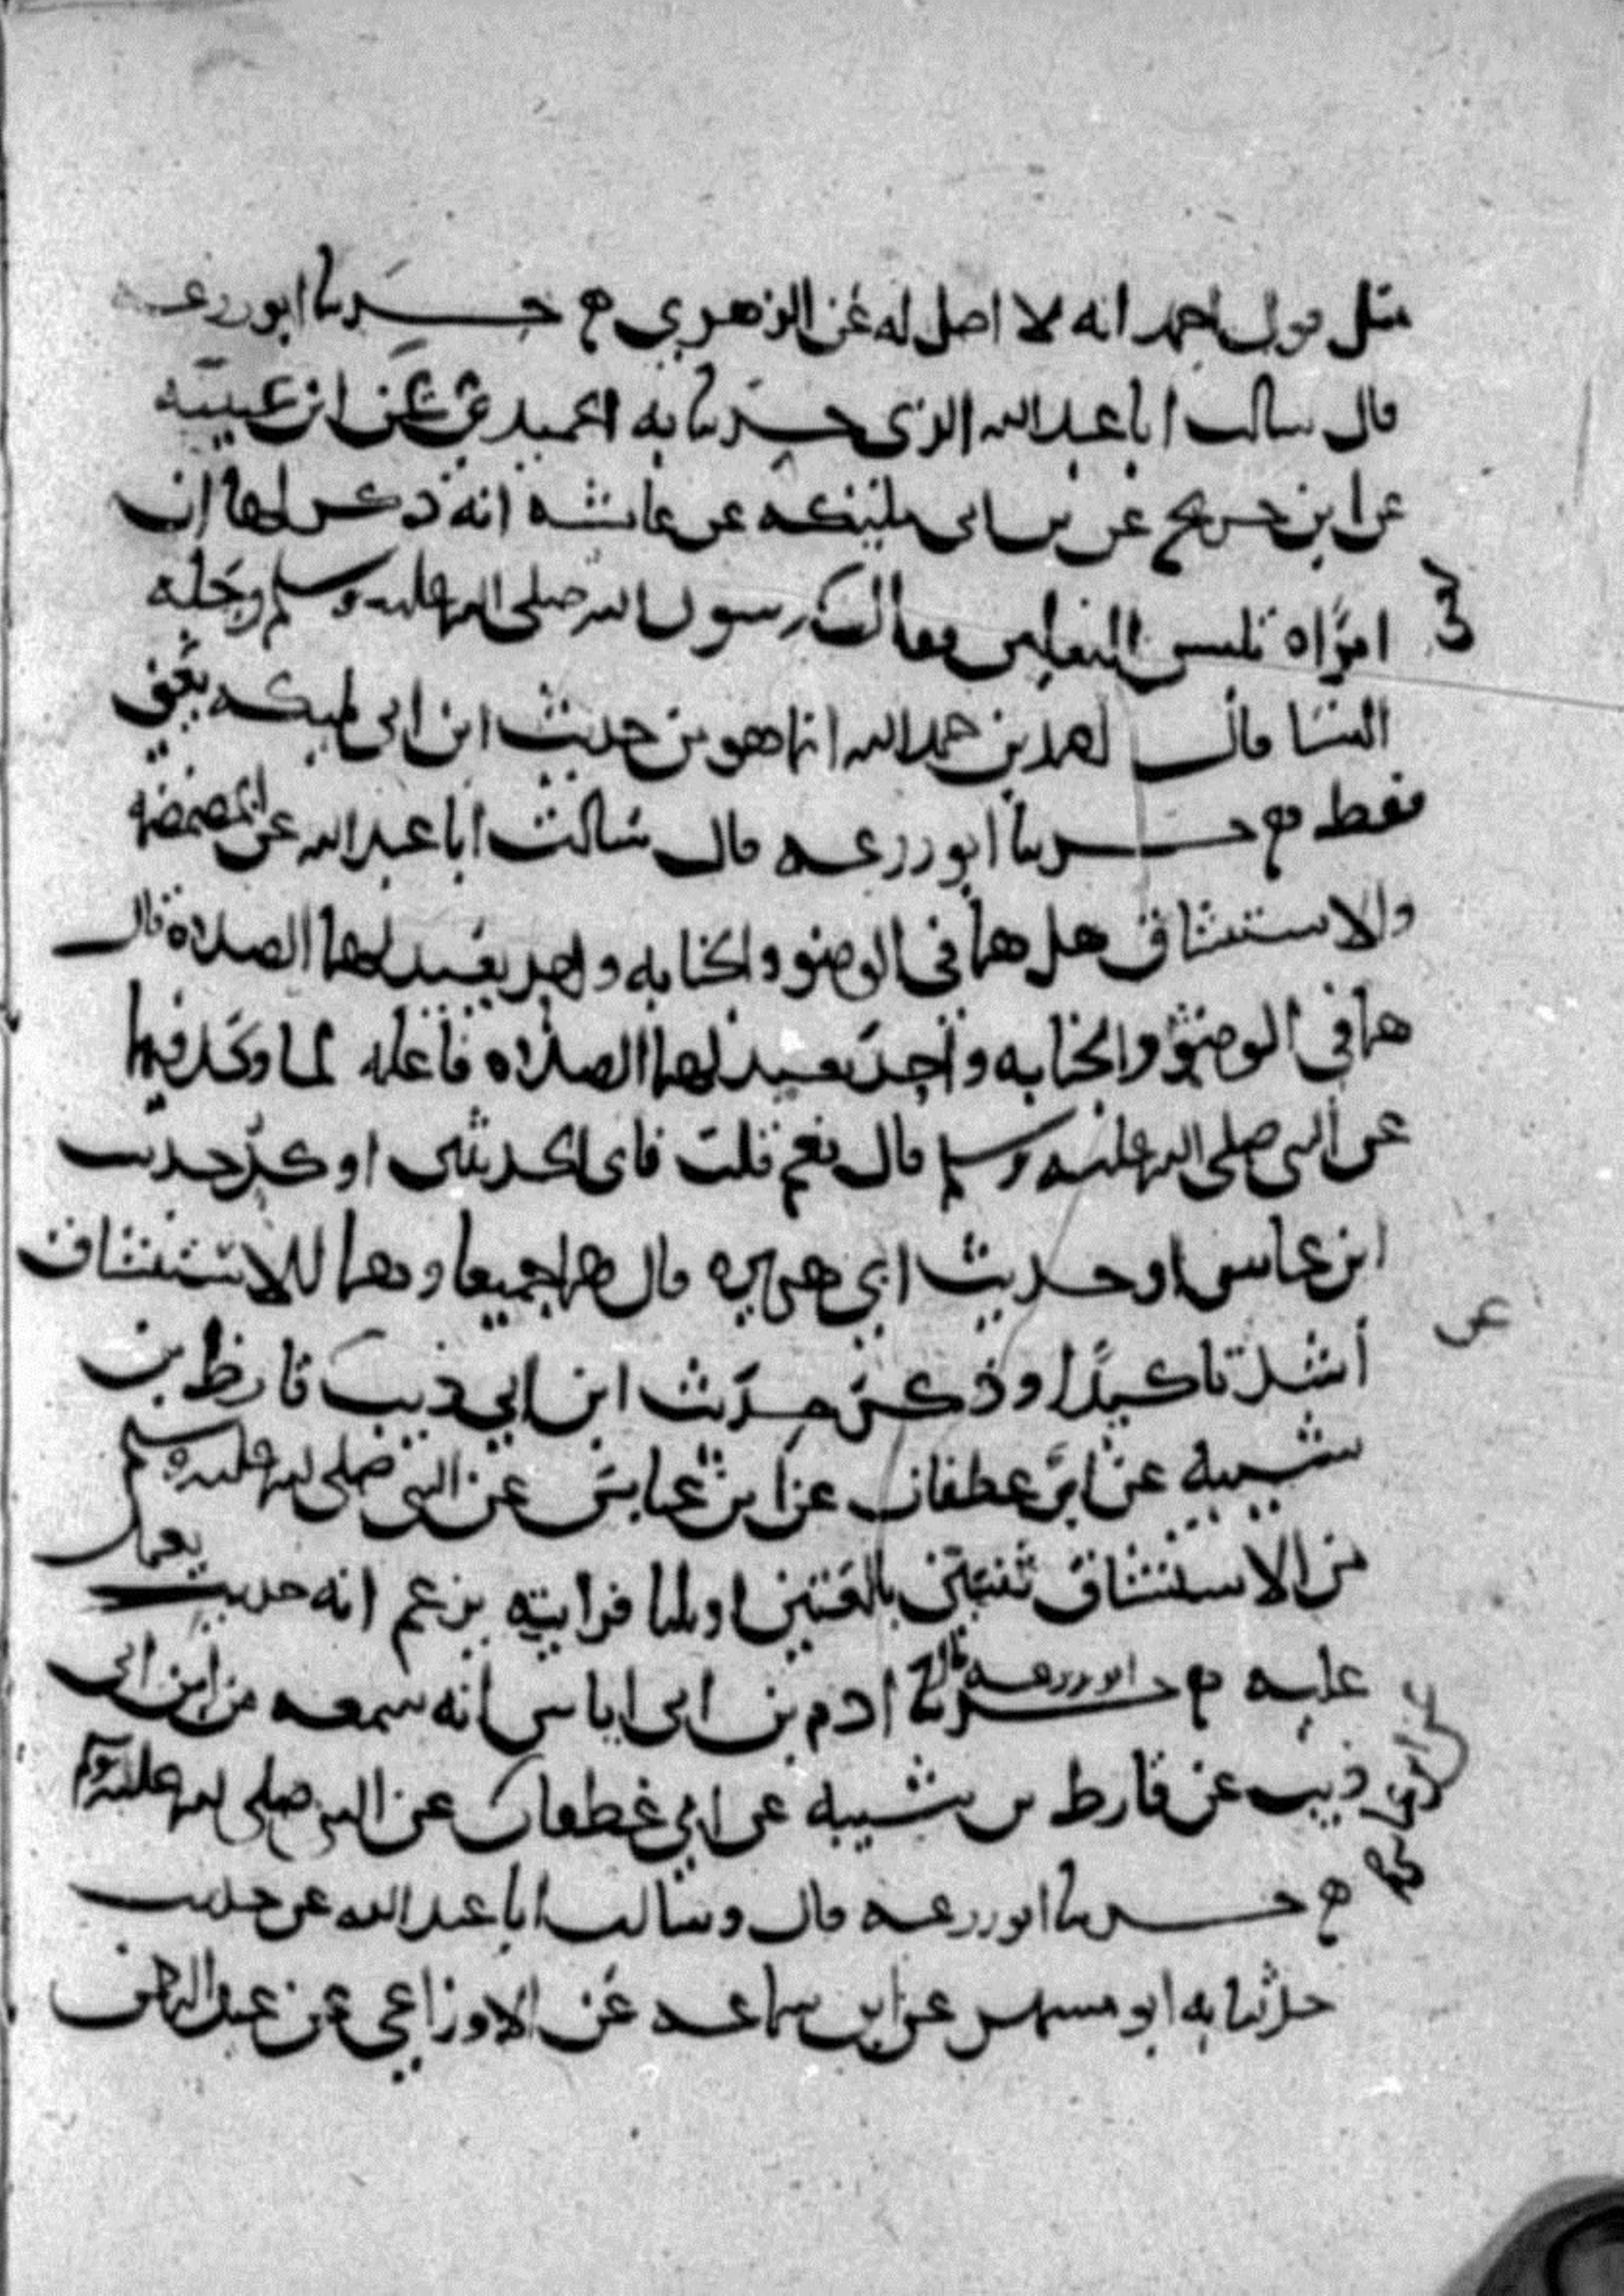 مثل قول احمد انه لا اصل له عن الزهري ح حدثنا ابو زرعه
قال سالت ابا عبد الله الذي حدثنا به الحميدي عن ابن عيينه
عن ابن جريج عن بن ابي مليكه عن عائشه انه ذكر لها ان
امراه تلبس النعلين فقالت رسول الله صلى الله عليه وسلم رجله
النسا قال احمد بن حمد الله انما هو من حديث ابن ابي مليكه
فقط ح حدثنا ابو زرعه قال سالت ابا عبد الله عن المضمضه
والاستنشاق هل هما في الوضو والجنابه واحد يعيد لهما الصلاه قال
هما في الوضو والجنابه واحد يعيد لهما الصلاه فاعله لما وكد فيهما
عن النبي صلى الله عليه وسلم قال نعم قلت فاي الحديثين اوكد حديث
ابن عباس او حديث ابي هريره قال هما جميعا وهما للاستنشاق
اشد تاكيدا وذكر حديث ابن ابي ذيب قارظ بن
شيبه عن ابي غطفان عن ابن عباس عن النبي صلى الله عليه وسلم
من الاستنشاق ثنتين بالغتين او ثلثا فرايته يزعم انه حديث يعمل
عليه ح حدثنا ابو زرعه قال ادم بن ابي اياس انه سمعه من ابن ابي
ذيب عن قارظ بن شيبه عن ابي غطفان عن النبي صلى الله عليه وسلم
ح حدثنا ابو زرعه قال وسالت ابا عبد الله عن حديث
حدثنا به ابو مسهر عن ابن سماعه عن الاوزاعي عن عبد الرحمن